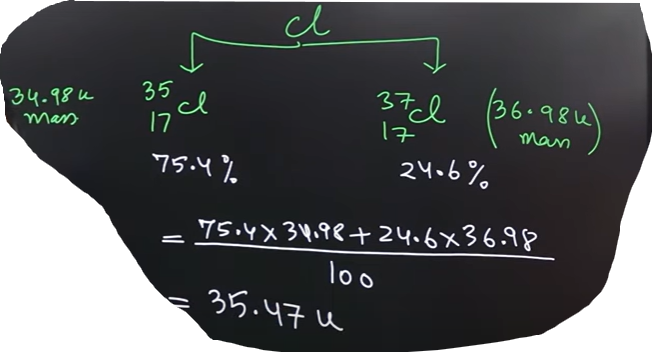 Cl
34.98u mass ³⁵₁₇Cl ³⁷₁₇Cl (36.98u mass)
75.4% 24.6%
= 75.4×34.98+24.6×36.98 / 100
= 35.47 u